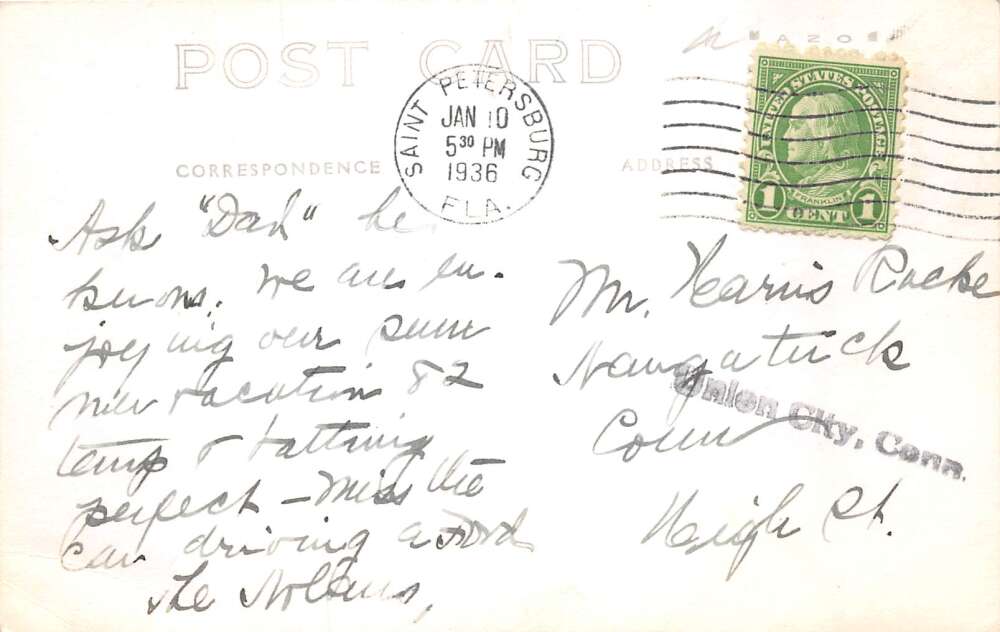 AZO
POST CARD
SAINT PETERSBURG
JAN 10
5 30 PM
1936
FLA.
UNITED STATES POSTAGE
FRANKLIN
1 CENT 1
CORRESPONDENCE
ADDRESS
Ask "Dad" he
knows. We are en-
joying our sum
mer vacation 82
temp &
perfect - Miss the
car driving a Ford
The Nolans,
Mr. Harris
Naugatuck
Conn
High St.
Union City, Conn.